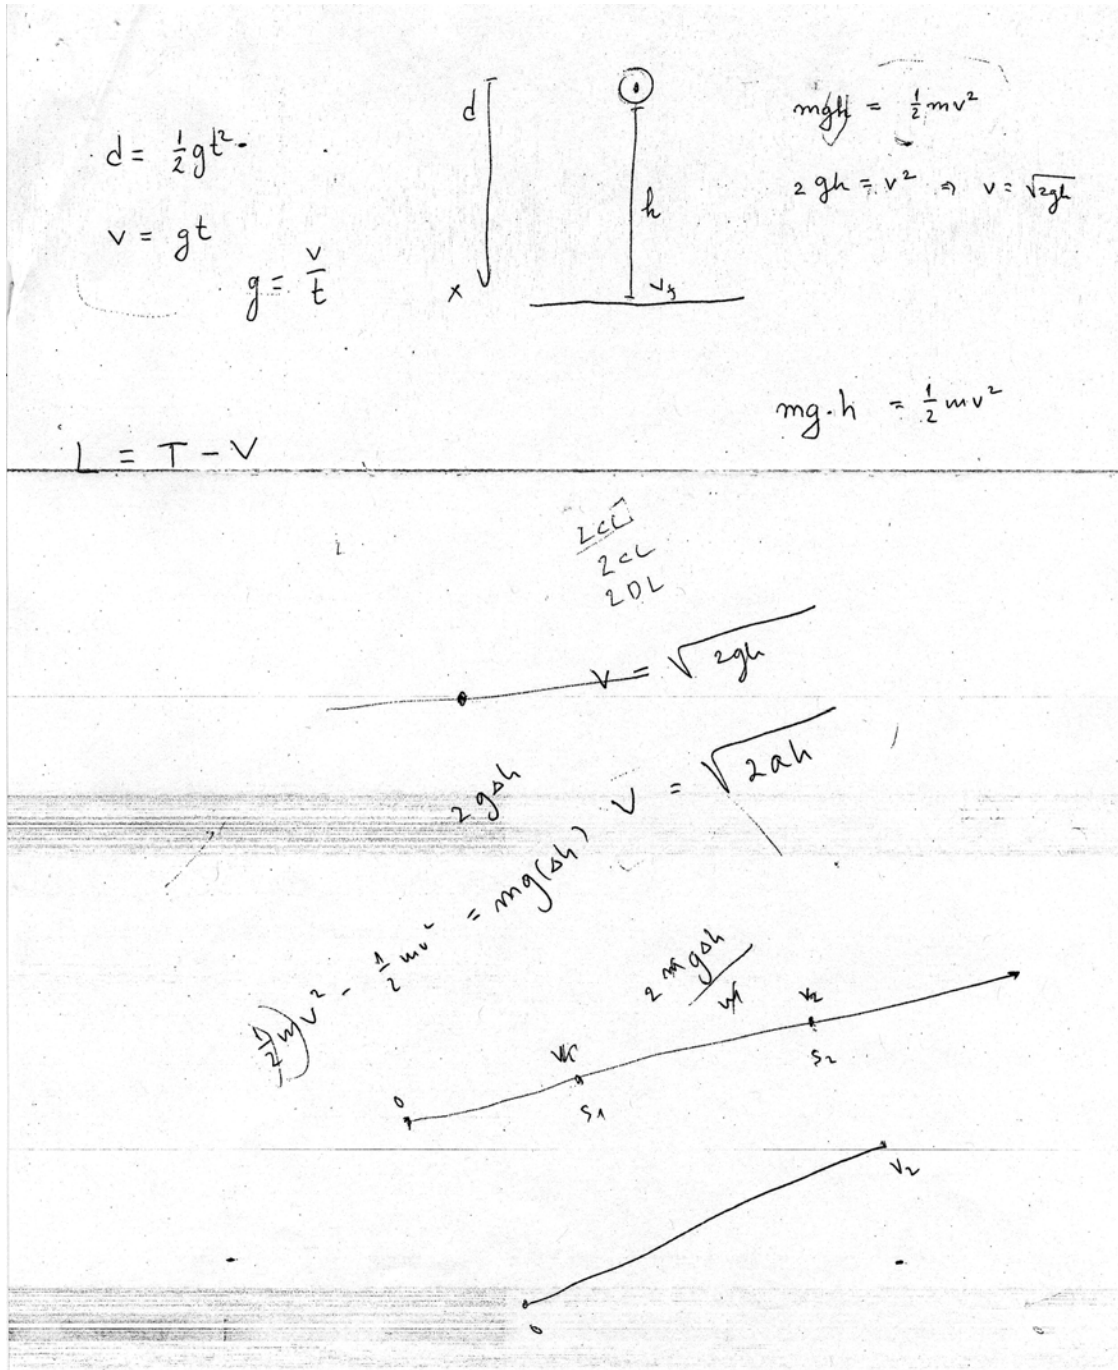 d = ½gt²
v = gt
g = v/t
d
x
h
v_f
mgh = ½mv²
2gh = v² ⇒ v = √2gh
mg·h = ½mv²
L = T − V
2CL
2CL
2DL
v = √2gh
v = √2ah
2gΔh
½mv² − ½mv² = mg(Δh)
2mgΔh/m
0
S1
v2
S2
v2
0